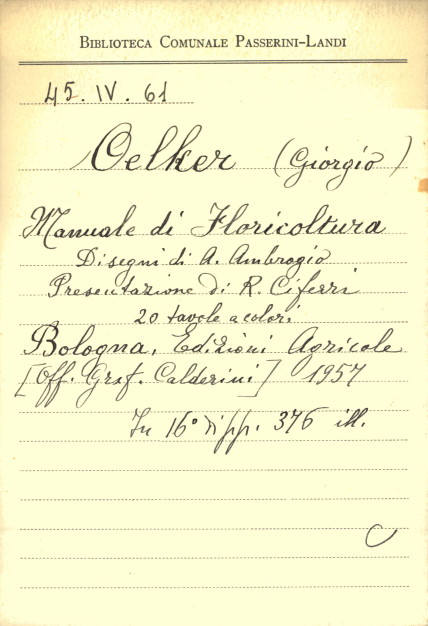 BIBLIOTECA COMUNALE PASSERINI-LANDI
45. IV. 61
Oelker (Giorgio)
Manuale di Floricoltura
Disegni di A. Ambrogio
Presentazione di R. Ciferri
20 tavole a colori
Bologna, Edizioni Agricole
[Off. Graf. Calderini] 1957
In 16° di pp. 376 ill.
C